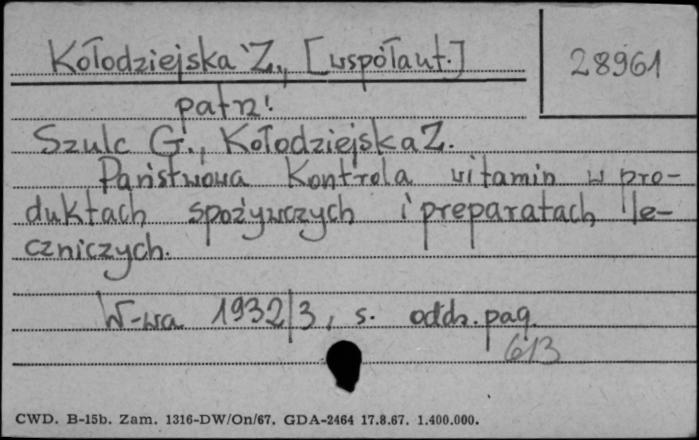 Kołodziejska Z., [współaut.]
28961
patrz:
Szulc G., Kołodziejska Z.
Państwowa Kontrola witamin w pro-
duktach spożywczych i preparatach le-
czniczych.
W-wa 1932/3, s. oddz. pag.
613
CWD. B-15b. Zam. 1316-DW/On/67. GDA-2464 17.8.67. 1.400.000.